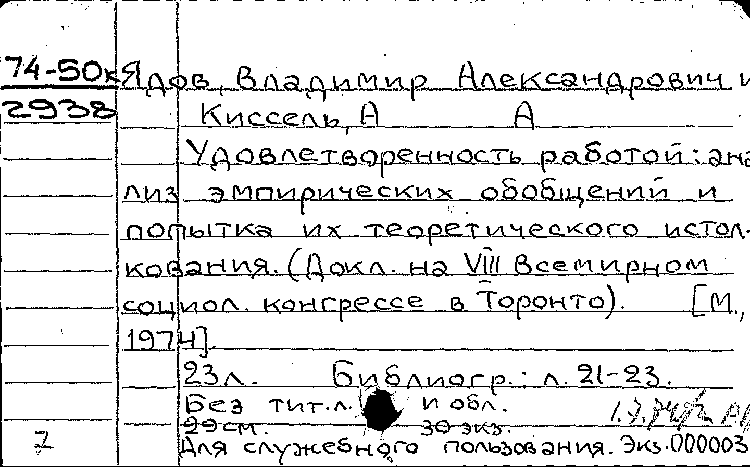 74-50к Ядов, Владимир Александрович и
2938 Киссель, А А
Удовлетворенность работой: ана
лиз эмпирических обобщений и
попытка их теоретического истол-
кования. (Докл. на VIII Всемирном
социол. конгрессе в Торонто). [М.,
1974].
23л. Библиогр.: л. 21-23.
Без тит.л. и обл.
29см. 30 экз.
Для служебного пользования. Экз. 000003